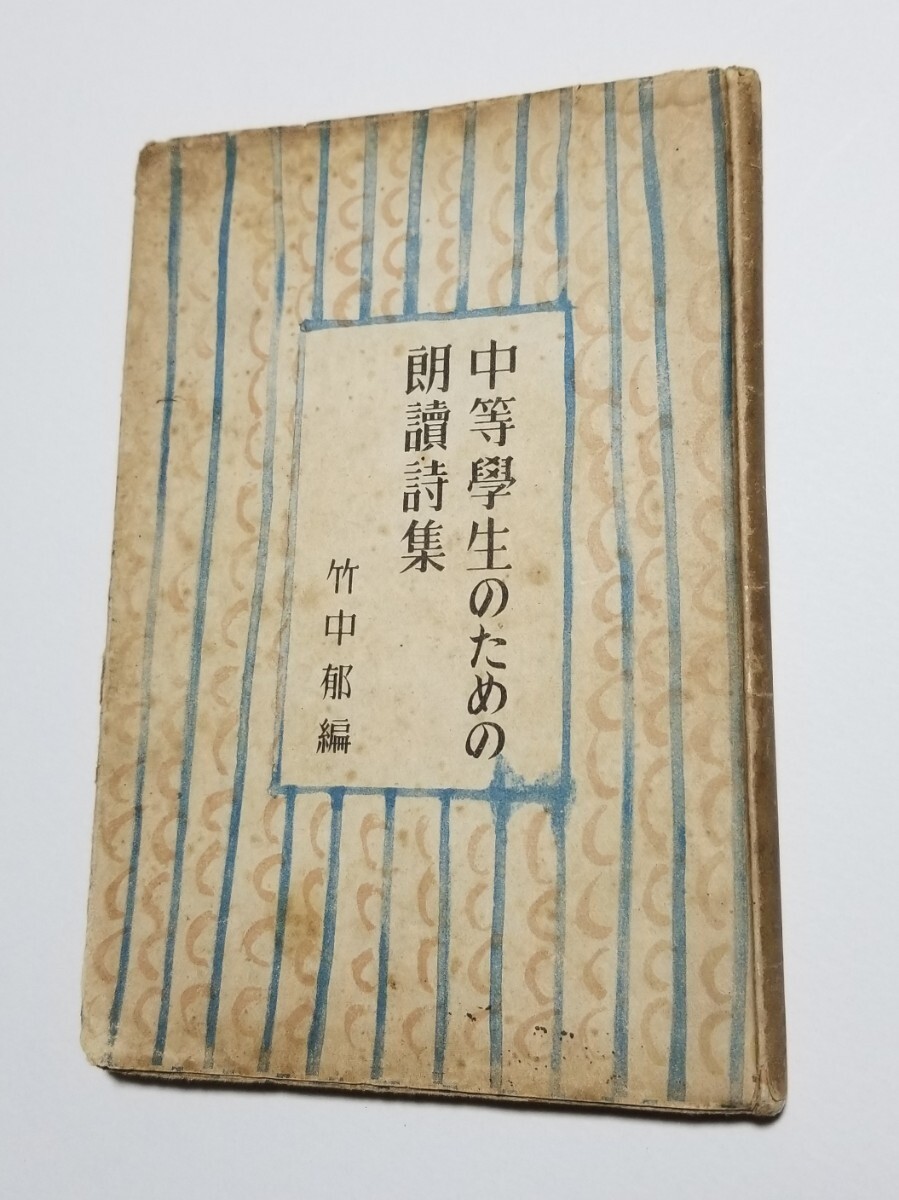 中等學生のための
朗讀詩集
竹中郁編